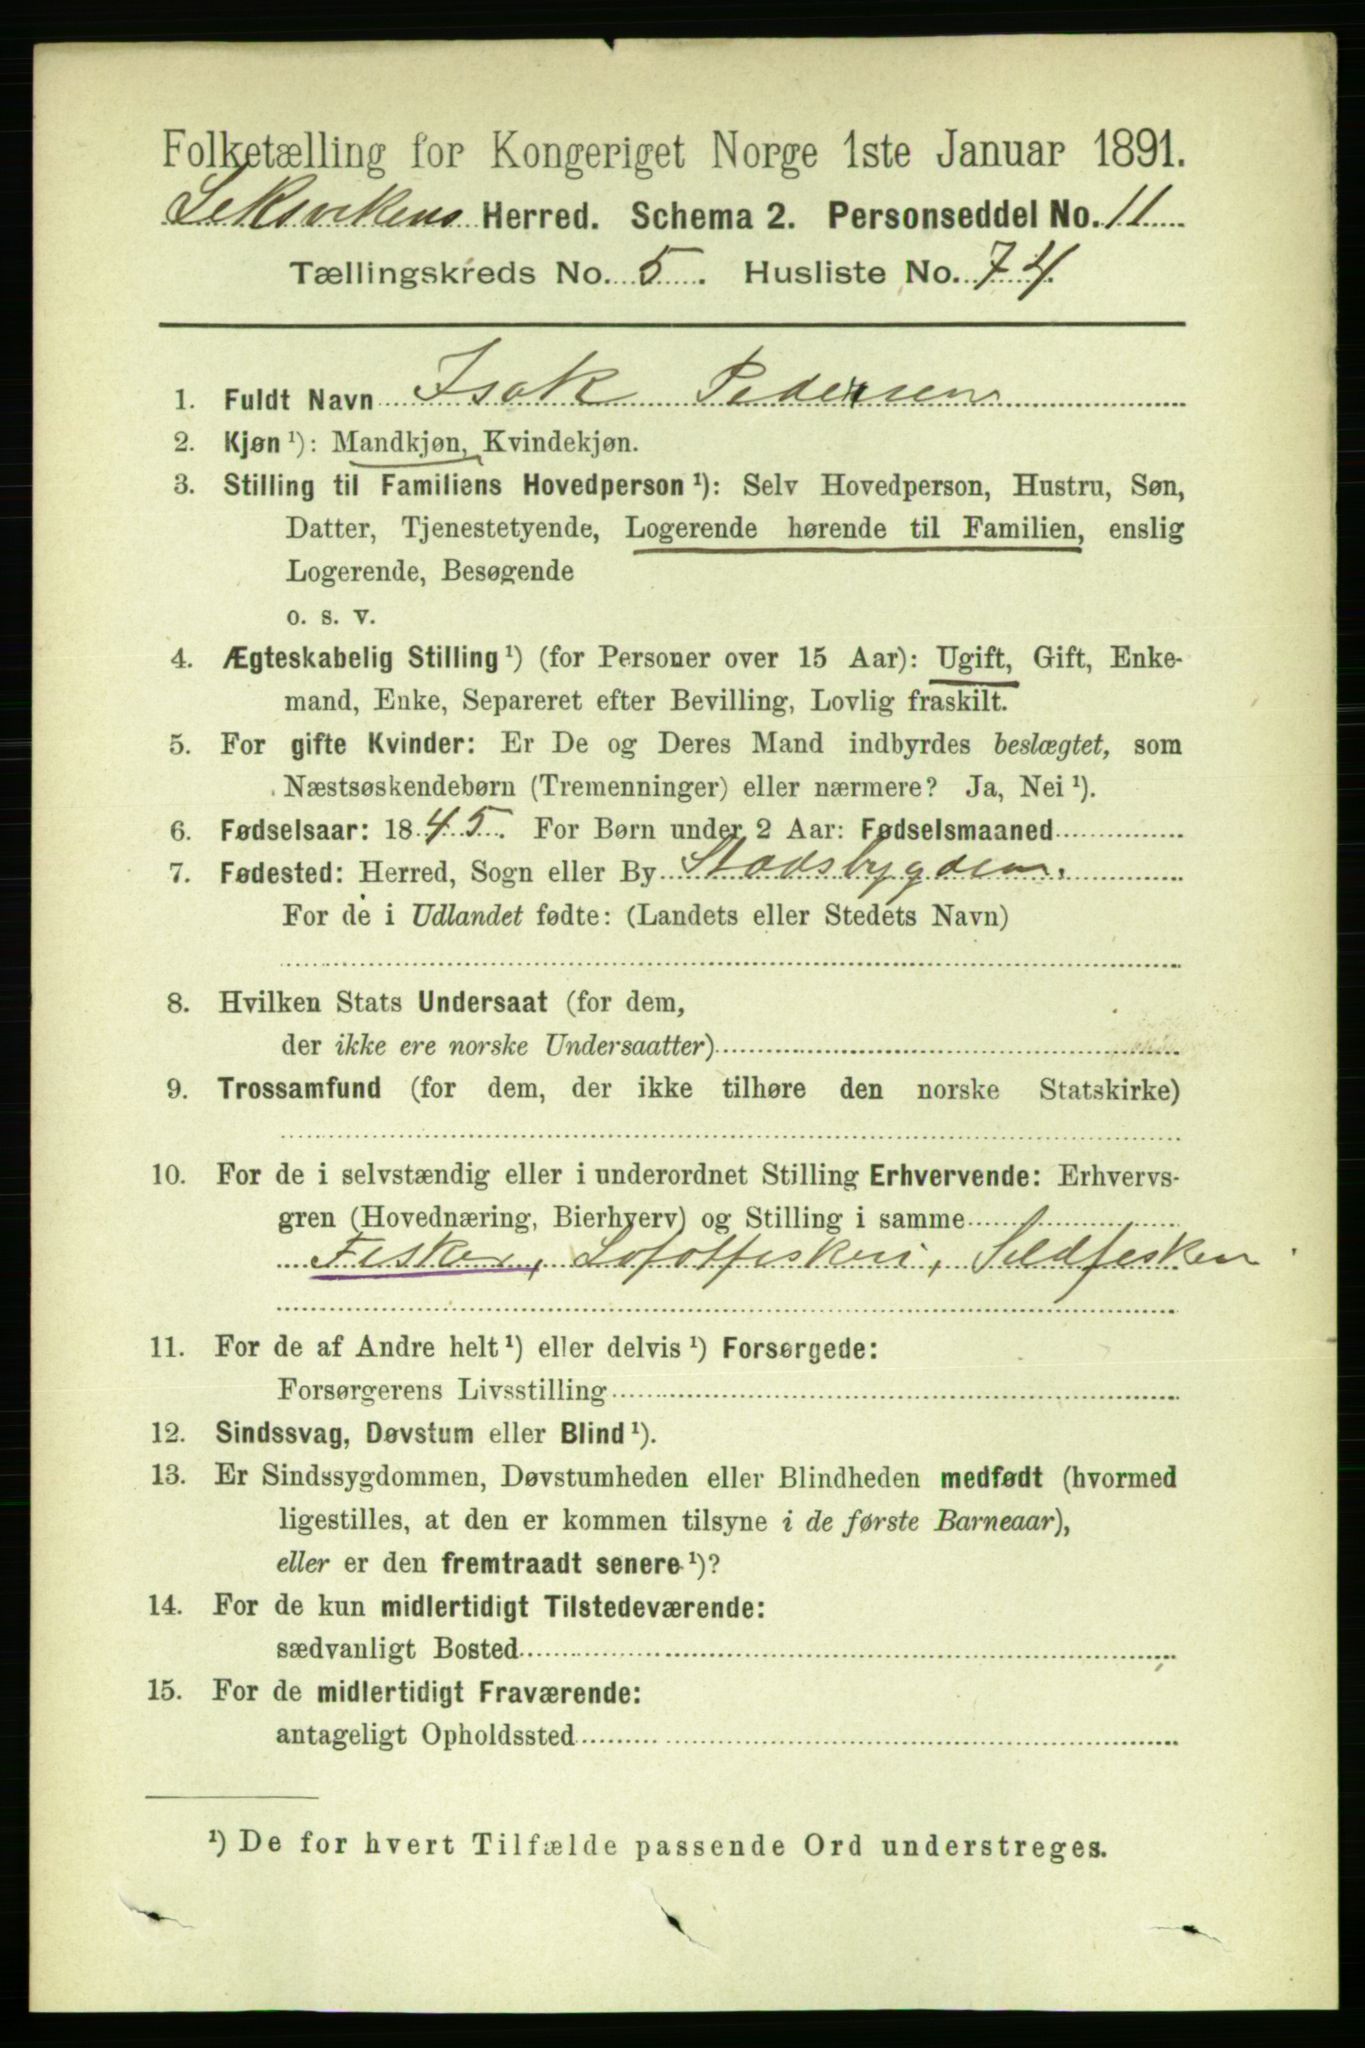 Folketælling for Kongeriget Norge 1ste Januar 1891.
Leksvikens Herred. Schema 2. Personseddel No. 11
Tællingskreds No. 5. Husliste No. 74
1. Fuldt Navn Isak Pedersen
2. Kjøn ¹): Mandkjøn, Kvindekjøn.
3. Stilling til Familiens Hovedperson ¹): Selv Hovedperson, Hustru, Søn,
Datter, Tjenestetyende, Logerende hørende til Familien, enslig
Logerende, Besøgende
o. s. v.
4. Ægteskabelig Stilling ¹) (for Personer over 15 Aar): Ugift, Gift, Enke-
mand, Enke, Separeret efter Bevilling, Lovlig fraskilt.
5. For gifte Kvinder: Er De og Deres Mand indbyrdes beslægtet, som
Næstsøskendebørn (Tremenninger) eller nærmere? Ja, Nei ¹).
6. Fødselsaar: 1845. For Børn under 2 Aar: Fødselsmaaned
7. Fødested: Herred, Sogn eller By Stadsbygden.
For de i Udlandet fødte: (Landets eller Stedets Navn)
8. Hvilken Stats Undersaat (for dem,
der ikke ere norske Undersaatter)
9. Trossamfund (for dem, der ikke tilhøre den norske Statskirke)
10. For de i selvstændig eller i underordnet Stilling Erhvervende: Erhvervs-
gren (Hovednæring, Bierhverv) og Stilling i samme
Fisker, Lofotfiskeri, Sildfisken
11. For de af Andre helt ¹) eller delvis ¹) Forsørgede:
Forsørgerens Livsstilling
12. Sindssvag, Døvstum eller Blind ¹).
13. Er Sindssygdommen, Døvstumheden eller Blindheden medfødt (hvormed
ligestilles, at den er kommen tilsyne i de første Barneaar),
eller er den fremtraadt senere ¹)?
14. For de kun midlertidigt Tilstedeværende:
sædvanligt Bosted
15. For de midlertidigt Fraværende:
antageligt Opholdssted
¹) De for hvert Tilfælde passende Ord understreges.